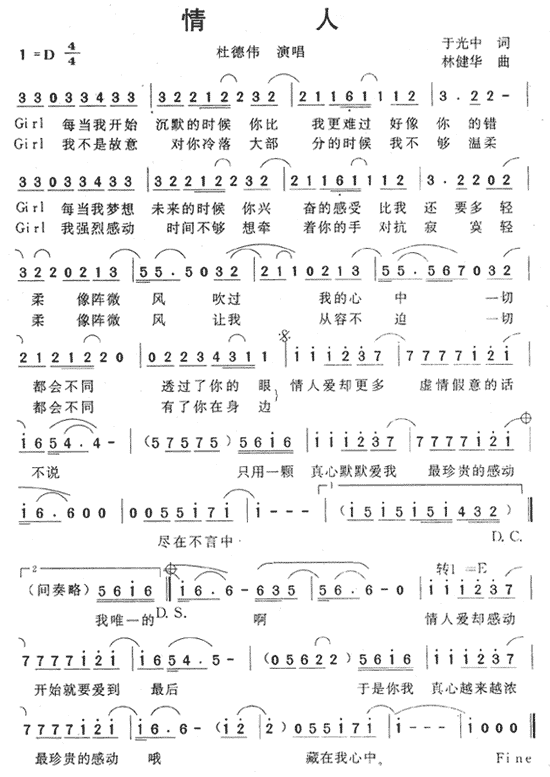 情 人
1=D 4/4 杜德伟 演唱 于光中 词
林健华 曲
33033433 | 32212232 | 21161112 | 3.22-
Girl 每当我开始 沉默的时候 你比 我更难过 好像 你 的错
Girl 我不是故意 对你冷落 大部 分的时候 我不 够 温柔
33033433 | 32212232 | 21161112 | 3.2202
Girl 每当我梦想 未来的时候 你兴 奋的感受 比我 还 要多 轻
Girl 我强烈感动 时间不够 想牵 着你的手 对抗 寂 寞轻
3220213 | 55.5032 | 2110213 | 55.567032
柔 像阵微 风 吹过 我的心 中 一切
柔 像阵微 风 让我 从容不 迫 一切
2121220 | 02234311 | iii237 | 7777i2i
都会不同 透过了你的 眼 情人爱却更多 虚情假意的话
都会不同 有了你在身 边
i654.4- | (57575) | 56i6 | iii237 | 7777i2i
不说 只用一颗 真心默默爱我 最珍贵的感动
i6.600 | 0055i7i | i--- | (i5i5i5i432)
尽在不言中 D.C.
(间奏略) 56i6 i6.6-635 | 56.6-0 | 转1=E iii237
我唯一的 D.S. 啊 情人爱却感动
7777i2i | i654.5- | (05622) | 56i6 | iii237
开始就要爱到 最后 于是你我 真心越来越浓
7777i2i | i6.6-(i2 | 2)055i7i | i--- | i000
最珍贵的感动 哦 藏在我心中。 Fine